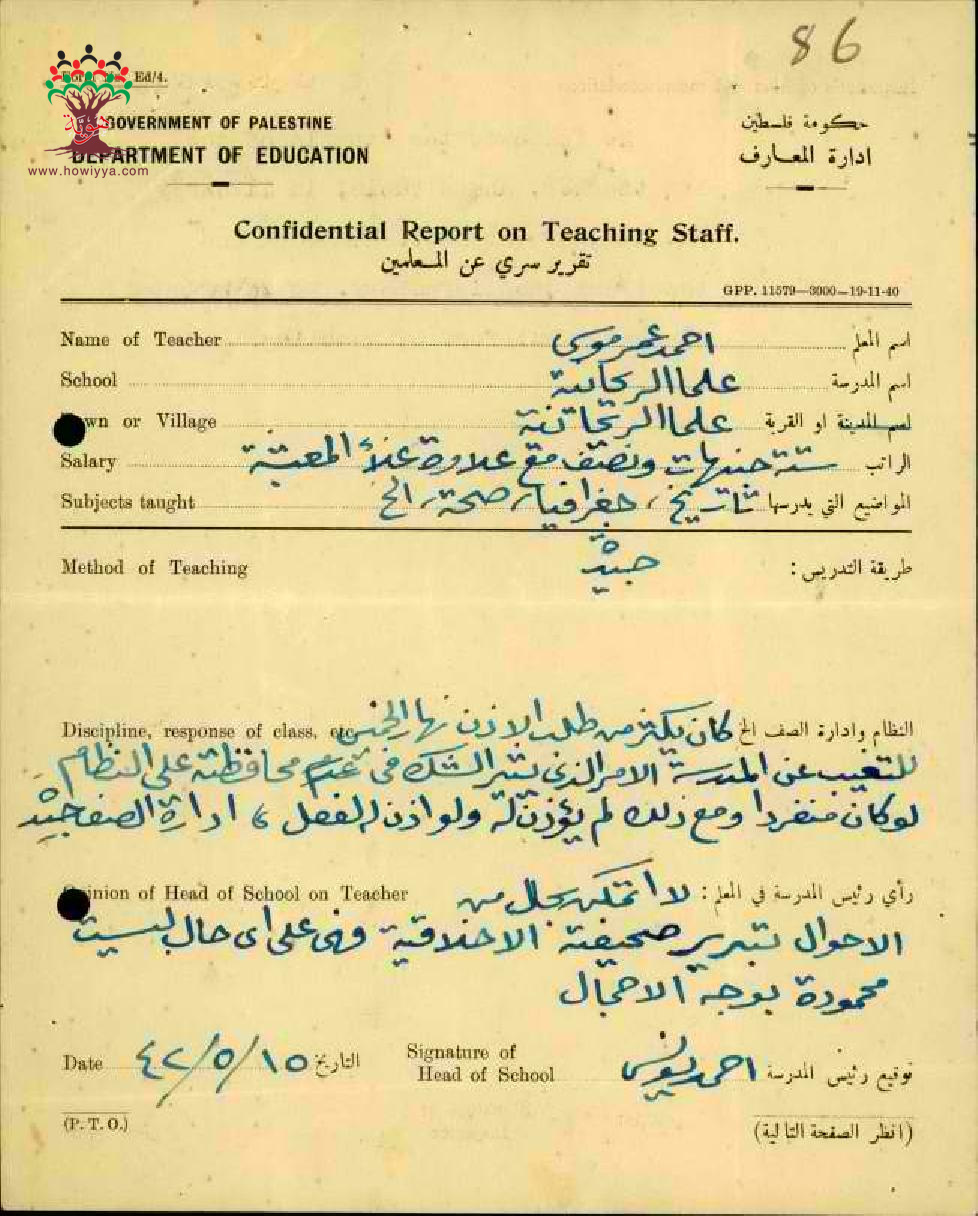 86
Ed/4.
هوية
www.howiyya.com
GOVERNMENT OF PALESTINE
DEPARTMENT OF EDUCATION
حكومة فلسطين
ادارة المعارف
Confidential Report on Teaching Staff.
تقرير سري عن المعلمين
GPP. 11579—3000—19-11-40
Name of Teacher احمد عمر موسى اسم المعلم
School علما الريحانية اسم المدرسة
Town or Village علما الريحانية اسم المدينة او القرية
Salary ستة جنيهات ونصف مع علاوة غلاء المعيشة الراتب
Subjects taught تاريخ، جغرافيا، صحة، الخ المواضيع التي يدرسها
Method of Teaching جيد طريقة التدريس :
Discipline, response of class, etc. كان يكثر من طلب الاذن نهار الخميس النظام وادارة الصف الخ
للتغيب عن المدرسة الامر الذي يثير الشك في عدم محافظته على النظام
لو كان منفردا ومع ذلك لم يؤذن له ولو اذن لفعل، ادارة الصف جيد
Opinion of Head of School on Teacher لا اتمكن بحال من رأي رئيس المدرسة في المعلم :
الاحوال تبرير صحيفته الاخلاقية وهي على اي حال ليست
محمودة بوجه الاجمال
Date ٤٢/٥/١٥ التاريخ Signature of Head of School احمد يونس توقيع رئيس المدرسة
(P. T. O.) (انظر الصفحة التالية)